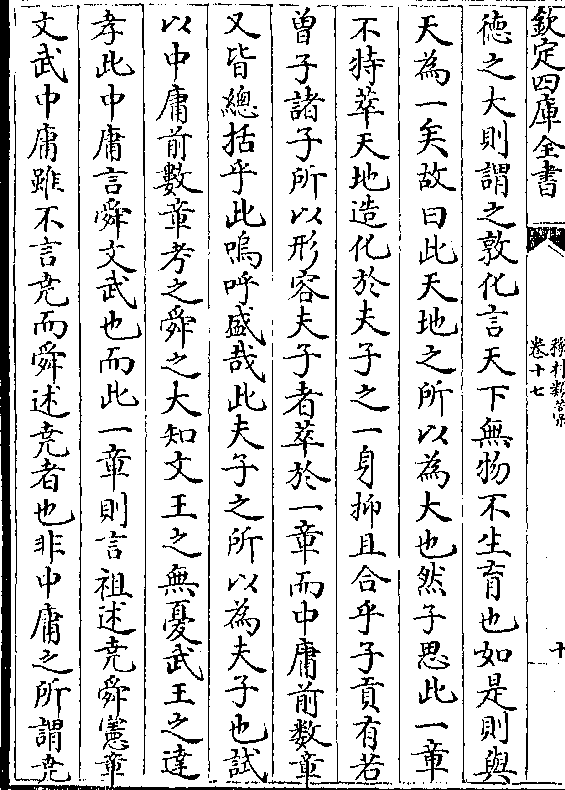 欽定四庫全書
卷十七
十
德之大則謂之敦化言天下無物不生育也如是則與
天為一矣故曰此天地之所以為大也然子思此一章
不特萃天地造化於夫子之一身抑且合乎子貢有若
曽子諸子所以形容夫子者萃於一章而中庸前数章
又皆總括乎此嗚呼盛哉此夫子之所以為夫子也試
以中庸前數章考之舜之大知文王之無憂武王之達
孝此中庸言舜文武也而此一章則言祖述堯舜憲章
文武中庸雖不言堯而舜述堯者也非中庸之所謂堯